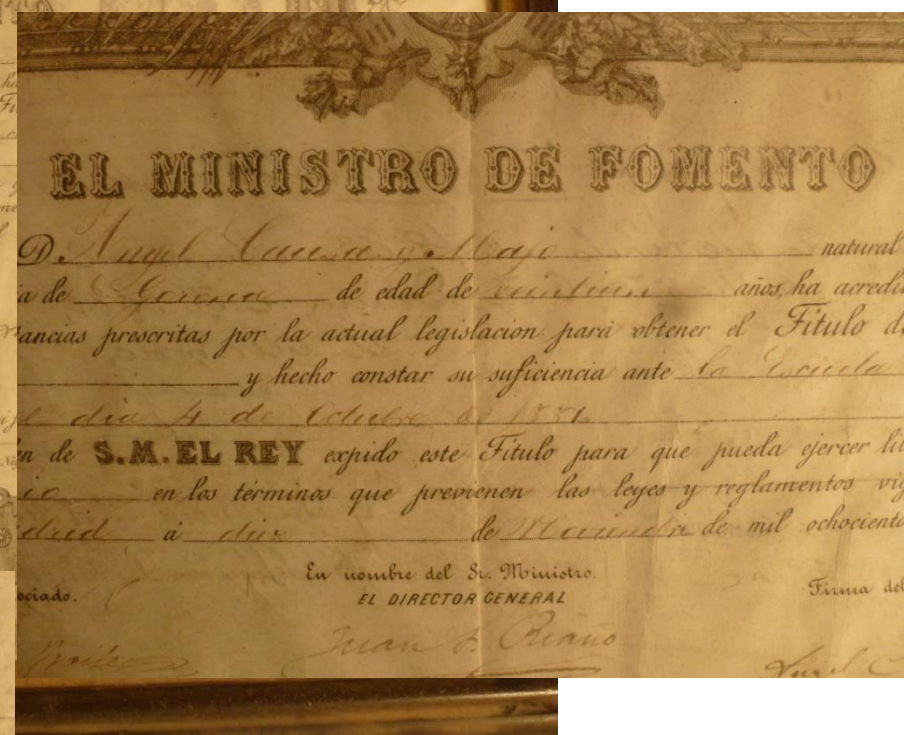 EL MINISTRO DE FOMENTO
D. Angel y natural
a de Gerona de edad de veintiun años, ha acredi
ancias prescritas por la actual legislacion para obtener el Título d
y hecho constar su suficiencia ante la Escuela
el dia 4 de Octubre de 1881
en de S.M. EL REY expido este Título para que pueda ejercer li
io en los términos que previenen las leyes y reglamentos vig
drid á diez de Noviembre de mil ochociento
En nombre del Sr. Ministro.
ociado. EL DIRECTOR GENERAL Firma del
Juan F. Riaño
Angel C